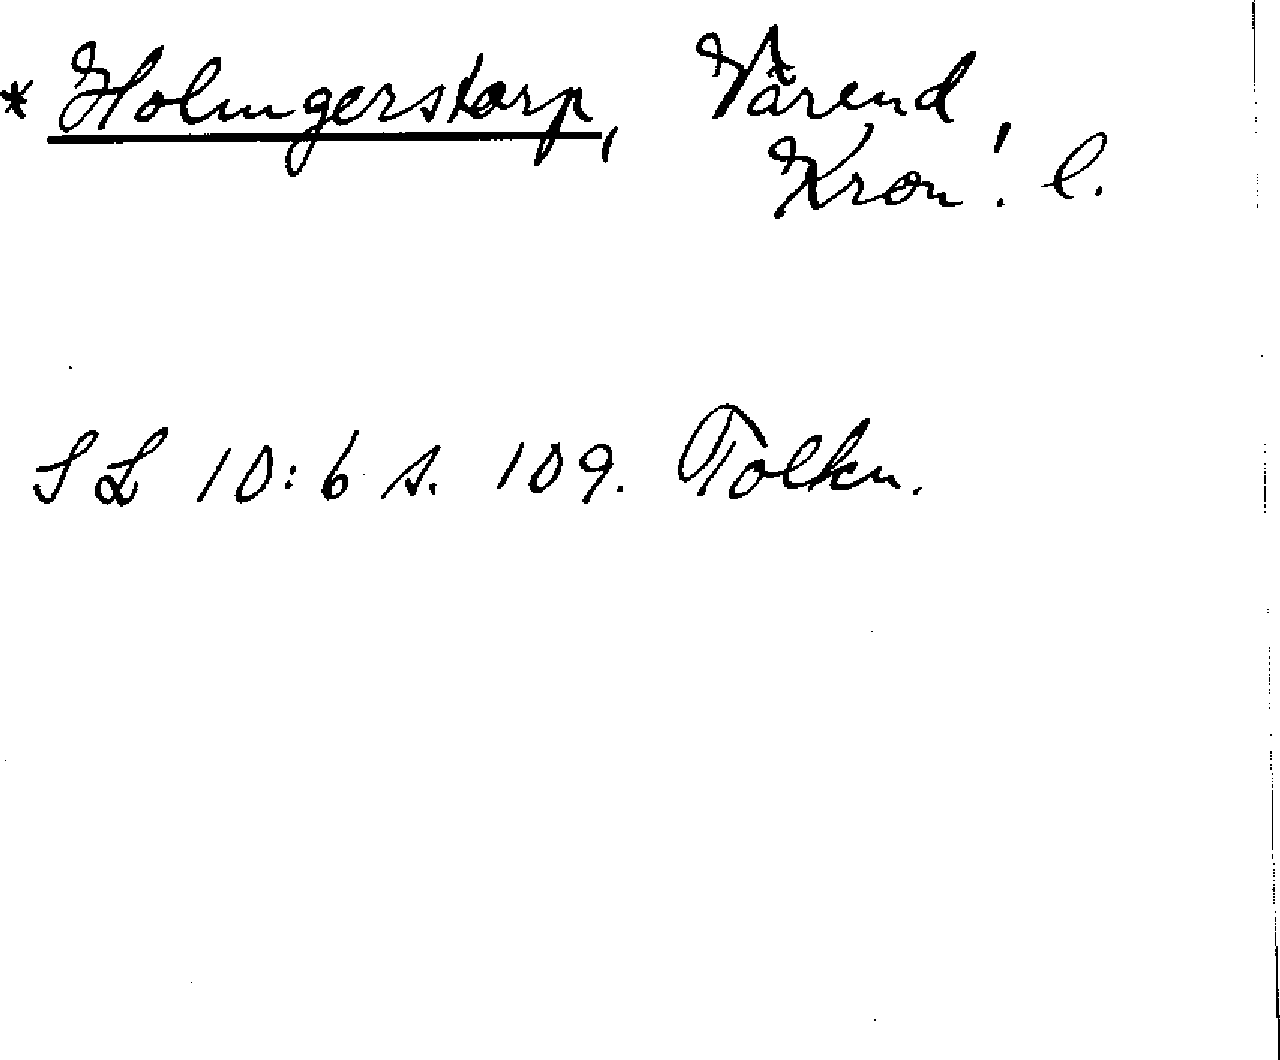 * Holmgerstorp, Värend
Kron. l.
SL 10:6 s. 109. Tolkn.